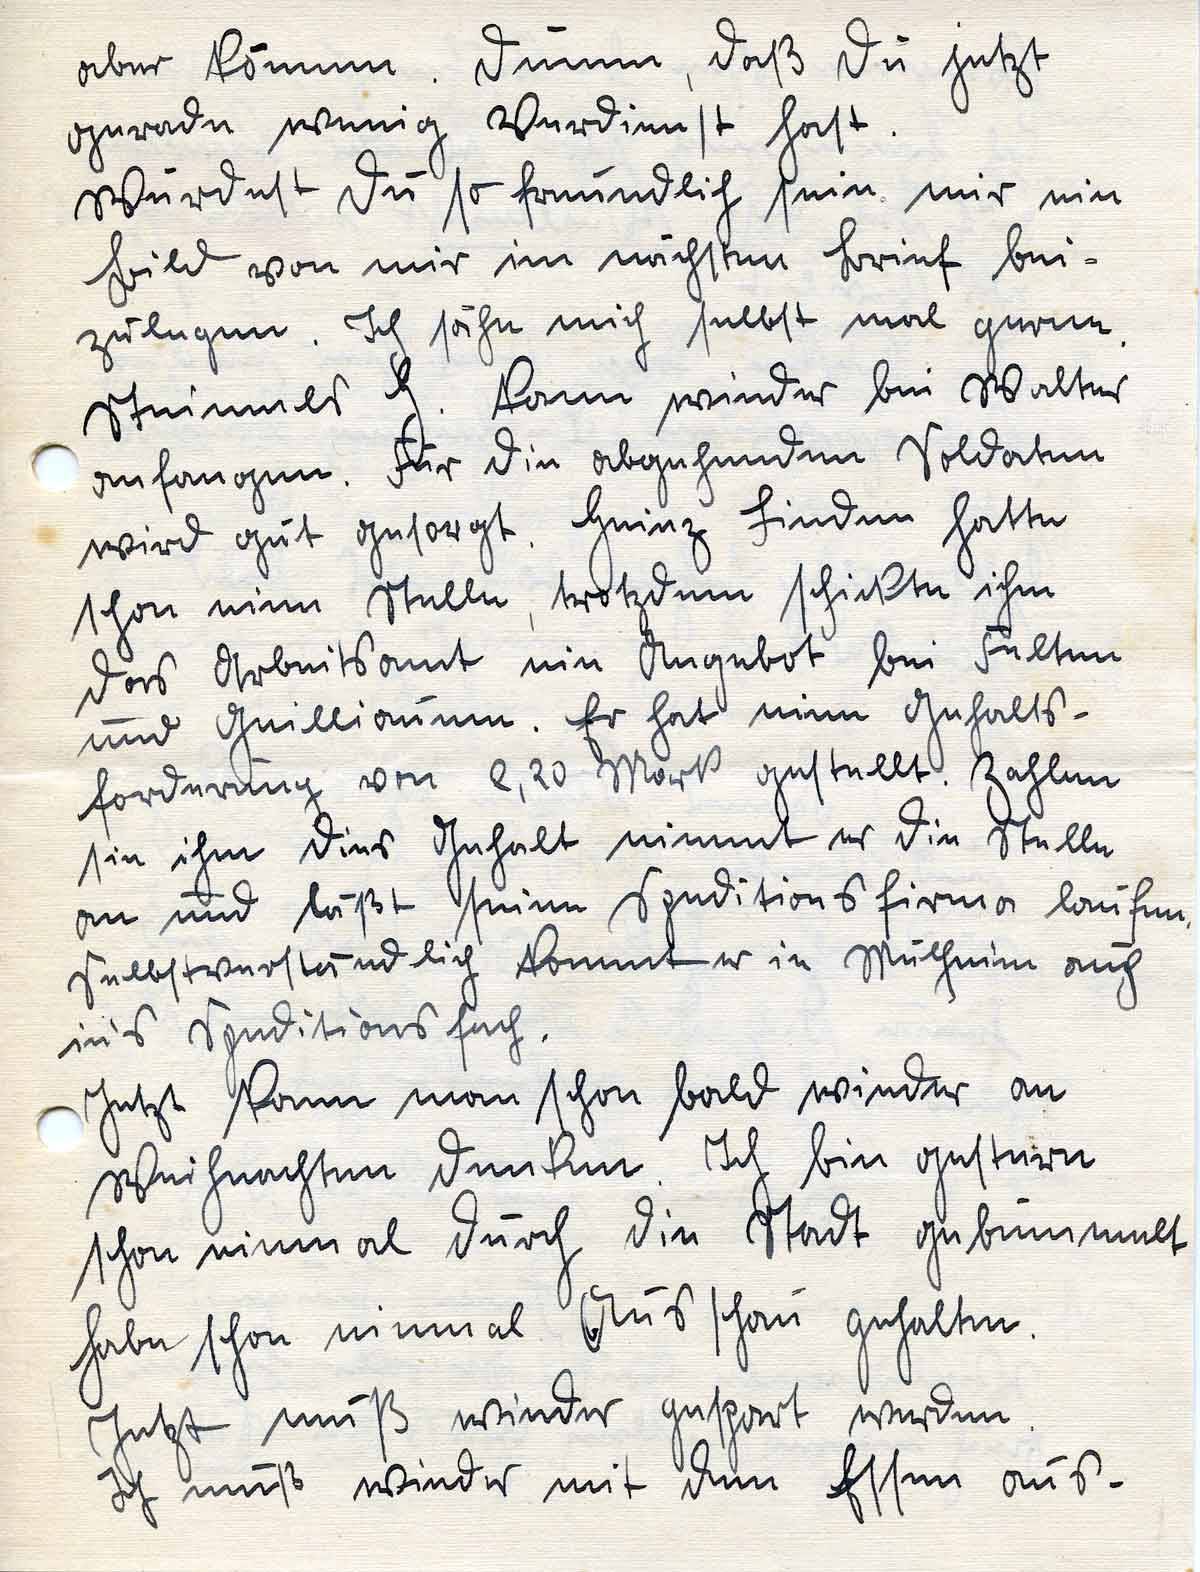 aber können. Dumm, daß Du jetzt
gerade wenig Verdienst hast.
Würdest Du so freundlich sein mir ein
Bild von mir im nächsten Brief bei-
zulegen. Ich sähe mich selbst mal gerne.
Steimels H. kann wieder bei Walter
anfangen. Für die abgehenden Soldaten
wird gut gesorgt. Heinz Finden hatte
schon eine Stelle, trotzdem schickte ihm
das Arbeitsamt ein Angebot bei Felten
und Guilliaume. Er hat eine Gehalts-
forderung von 2,20 Mark gestellt. Zahlen
sie ihm dies Gehalt nimmt er die Stelle
an und läßt seine Speditionsfirma laufen.
Selbstverständlich kommt er in Mülheim auch
in's Speditionsfach.
Jetzt kann man schon bald wieder an
Weihnachten denken. Ich bin gestern
schon einmal durch die Stadt gebummelt
habe schon einmal Ausschau gehalten.
Jetzt muß wieder gespart werden.
Ich muß wieder mit dem Essen aus-